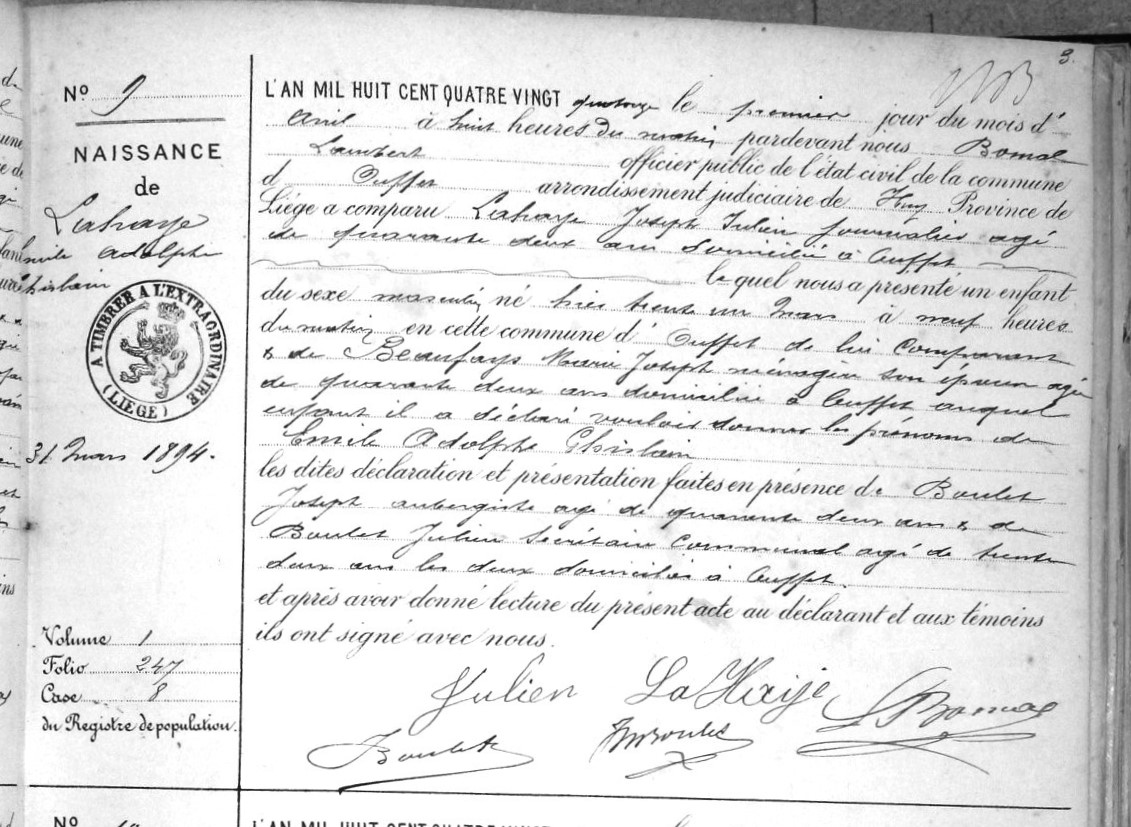 3.
N° 9
NAISSANCE
de
Lahaye
Emile Adolphe
Ghislain
A TIMBRER A L'EXTRAORDINAIRE
(LIÈGE)
31 Mars 1894.
Volume 1
Folio 247
Case 8
du Registre de population.
L'AN MIL HUIT CENT QUATRE VINGT quatorze le premier jour du mois d'
Avril à huit heures du matin pardevant nous Bomal
Lambert officier public de l'état civil de la commune
d Ouffet arrondissement judiciaire de Huy Province de
Liège a comparu Lahaye Joseph Julien journalier agé
de quarante deux ans domicilié à Ouffet
le quel nous a présenté un enfant
du sexe masculin né hier trente un Mars à neuf heures
du matin en cette commune d' Ouffet de lui Comparant
& de Beaufays Marie Joseph ménagère son épouse agée
de quarante deux ans domiciliée à Ouffet auquel
enfant il a déclaré vouloir donner les prénoms de
Emile Adolphe Ghislain
les dites déclaration et présentation faites en présence de Boulet
Joseph aubergiste agé de quarante deux ans & de
Boulet Julien Secrétaire Communal agé de trente
deux ans les deux domiciliés à Ouffet.
et après avoir donné lecture du présent acte au déclarant et aux témoins
ils ont signé avec nous.
Julien La Haije L Bomal
J Boulet Boulet
N°
L'AN MIL HUIT CENT QUATRE VINGT